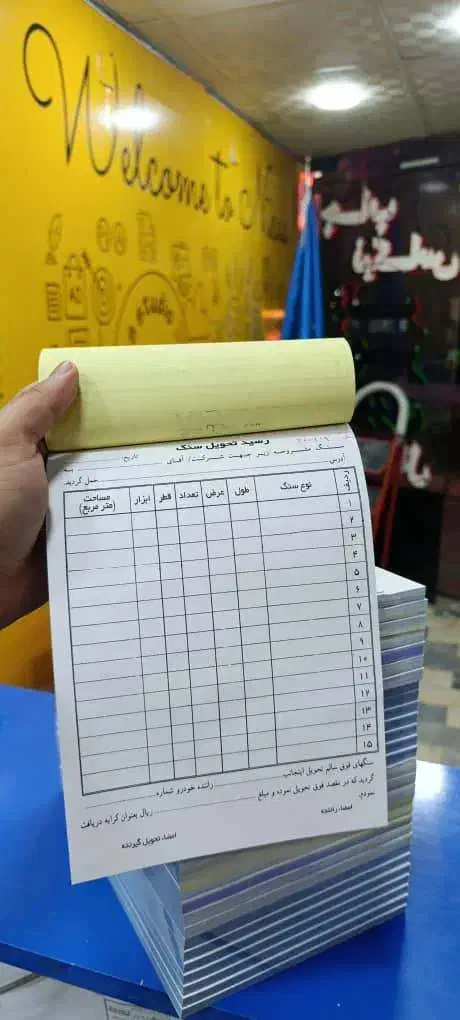 Welcome to
رسید تحویل سنگ
سنگ مشروحه زیر جهت شرکت/ آقای
تاریخ:
آدرس
حمل گردید.
ردیف نوع سنگ طول عرض تعداد قطر ابزار مساحت (متر مربع)
۱
۲
۳
۴
۵
۶
۷
۸
۹
۱۰
۱۱
۱۲
۱۳
۱۴
۱۵
سنگهای فوق سالم تحویل اینجانب راننده خودرو شماره
گردید که در مقصد فوق تحویل نموده و مبلغ ریال بعنوان کرایه دریافت
نمودم.
امضاء راننده
امضاء تحویل گیرنده